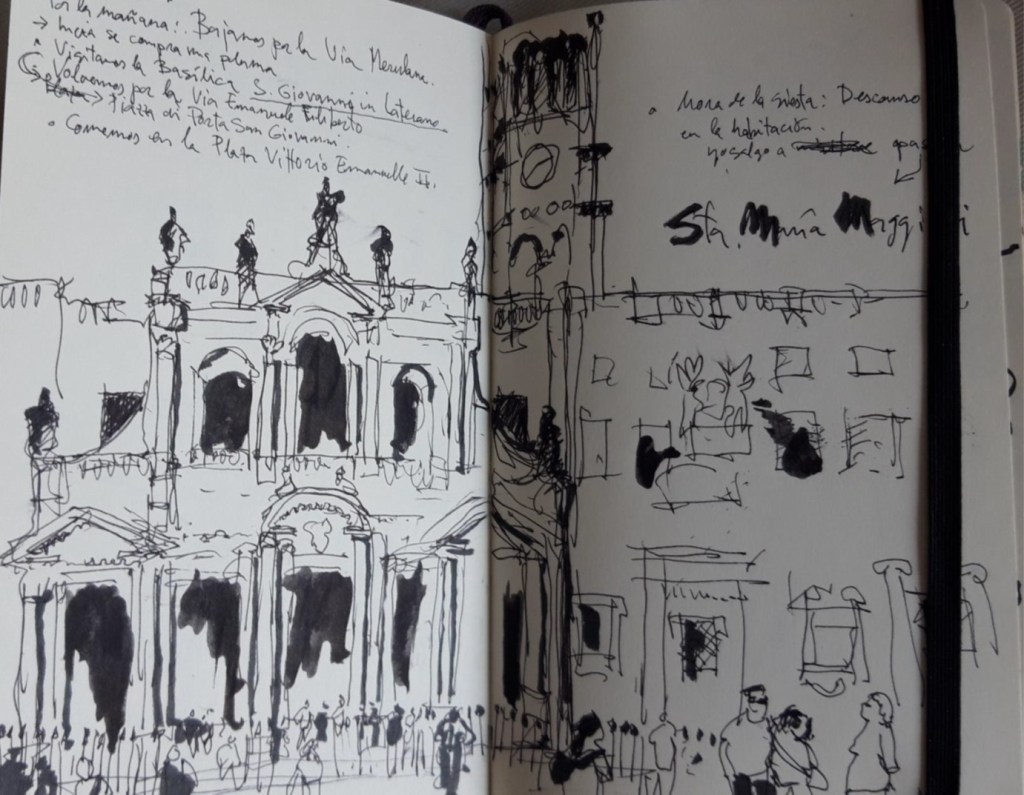 Por la mañana: Bajamos por la Via Merulana.
→ se compra una pluma
• Visitamos la Basílica S. Giovanni in Laterano.
Volvemos por la Via Emanuele Filiberto
→ Piazza di Porta San Giovanni.
• Comemos en la Plaza Vittorio Emanuelle II.
• Hora de la siesta: Descanso
en la habitación.
yo salgo a
Sta. María Maggiori